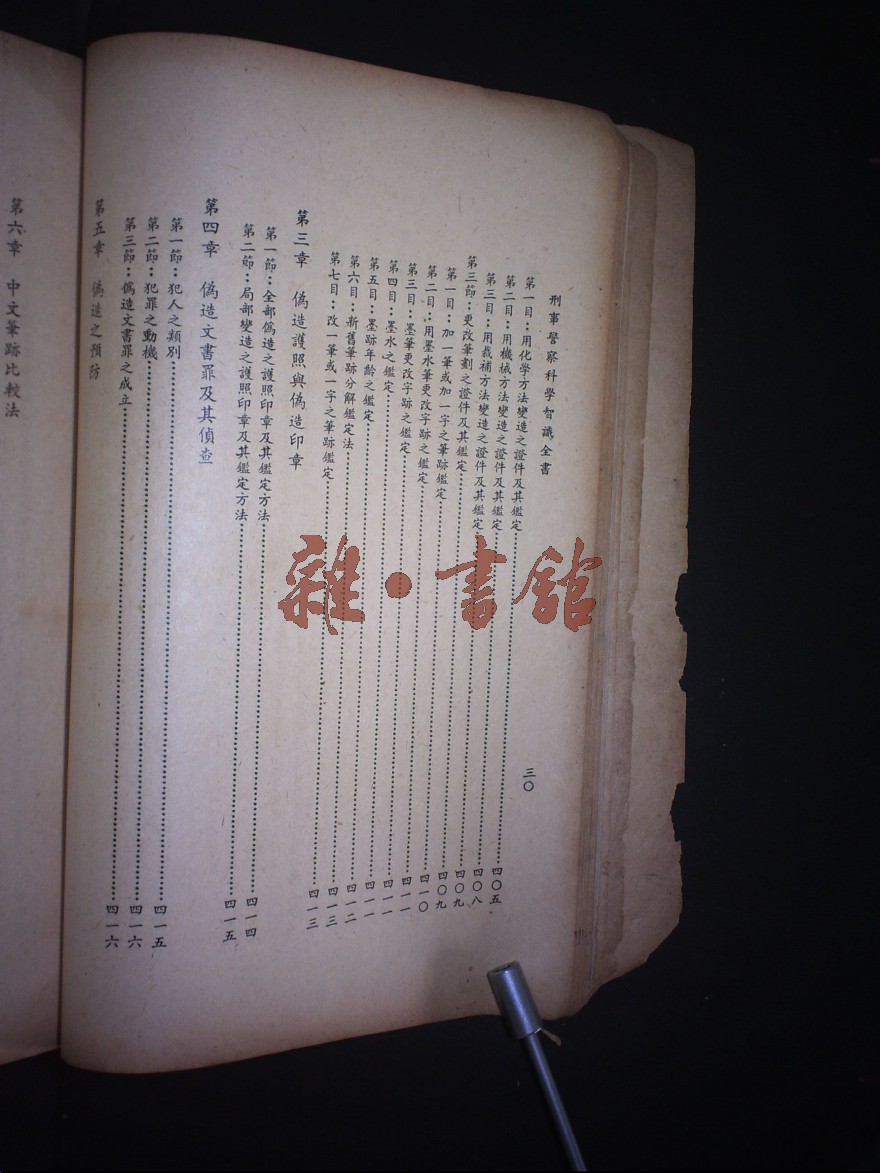 刑事警察科學智識全書 三〇
第一目：用化学方法變造之證件及其鑑定……四〇五
第二目：用機械方法變造之證件及其鑑定……四〇八
第三目：用裁補方法變造之證件及其鑑定……四〇九
第三節：更改筆劃之證件及其鑑定……四〇九
第一目：加一筆或加一字之筆跡鑑定……四一〇
第二目：用墨水筆更改字跡之鑑定……四一一
第三目：墨筆更改字跡之鑑定……四一一
第四目：墨水之鑑定……四一一
第五目：墨跡年齡之鑑定……四一二
第六目：新舊筆跡分解鑑定法……四一三
第七目：改一筆或一字之筆跡鑑定……四一三
第三章 偽造護照與偽造印章
第一節：全部偽造之護照印章及其鑑定方法……四一四
第二節：局部變造之護照印章及其鑑定方法……四一五
第四章 偽造文書罪及其偵查
第一節：犯人之類別……四一五
第二節：犯罪之動機……四一六
第三節：偽造文書罪之成立……四一六
第五章 偽造之預防
第六章 中文筆跡比較法
雜·書館